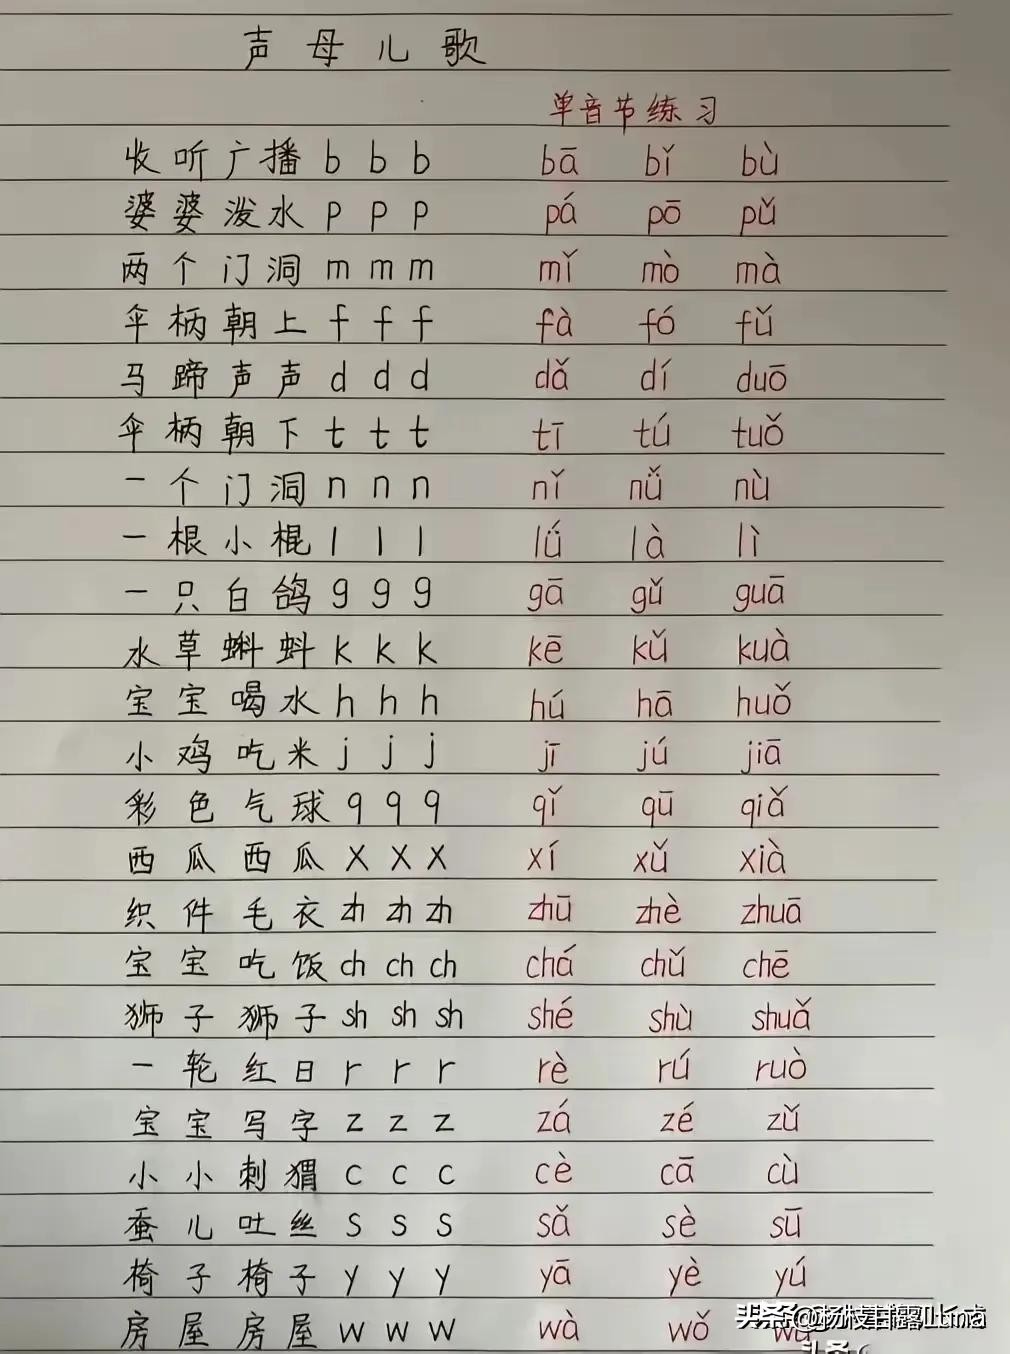 声母儿歌
单音节练习
收听广播 b b b bā bǐ bù
婆婆泼水 p p p pá pō pǔ
两个门洞 m m m mǐ mò mà
伞柄朝上 f f f fà fó fǔ
马蹄声声 d d d dǎ dí duō
伞柄朝下 t t t tī tú tuǒ
一个门洞 n n n nǐ nǚ nù
一根小棍 l l l lǘ là lì
一只白鸽 g g g gā gǔ guā
水草蝌蚪 k k k kē kǔ kuà
宝宝喝水 h h h hú hā huǒ
小鸡吃米 j j j jī jú jiā
彩色气球 q q q qǐ qū qiǎ
西瓜西瓜 x x x xí xǔ xià
织件毛衣 zh zh zh zhū zhè zhuā
宝宝吃饭 ch ch ch chá chǔ chē
狮子狮子 sh sh sh shé shù shuǎ
一轮红日 r r r rè rú ruò
宝宝写字 z z z zá zé zǔ
小小刺猬 c c c cè cā cù
蚕儿吐丝 s s s sǎ sè sū
椅子椅子 y y y yā yè yú
房屋房屋 w w w wà wǒ
头条@杨枝甘露Luna